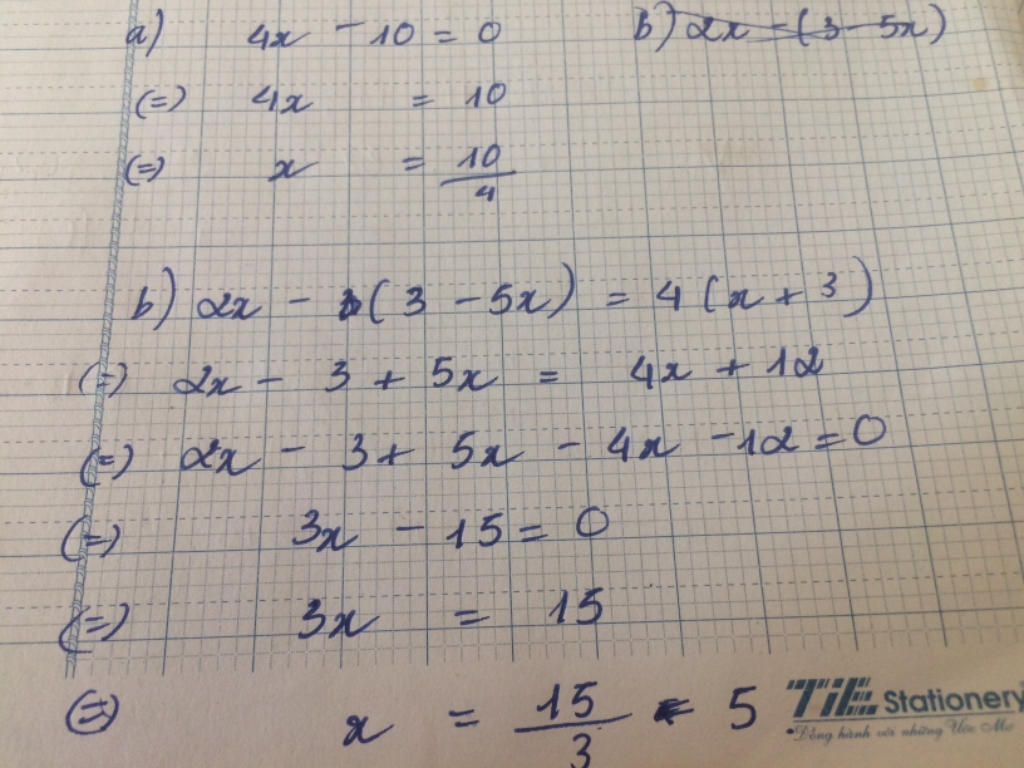 a) 4x - 10 = 0
b) 2x - (3 - 5x)
(=) 4x = 10
(=) x = 10/4
b) 2x - (3 - 5x) = 4(x + 3)
(=) 2x - 3 + 5x = 4x + 12
(=) 2x - 3 + 5x - 4x - 12 = 0
(=) 3x - 15 = 0
(=) 3x = 15
(=) x = 15/3 = 5
TiE Stationery
Đồng hành với những Ước Mơ